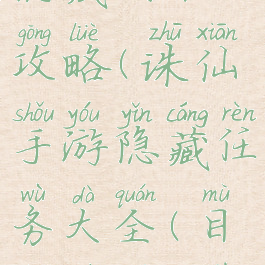 gōng lüè zhū xiān
攻略(诛仙
shǒu yóu yǐn cáng rèn
手游隐藏任
wù dà quán mù
务大全(目